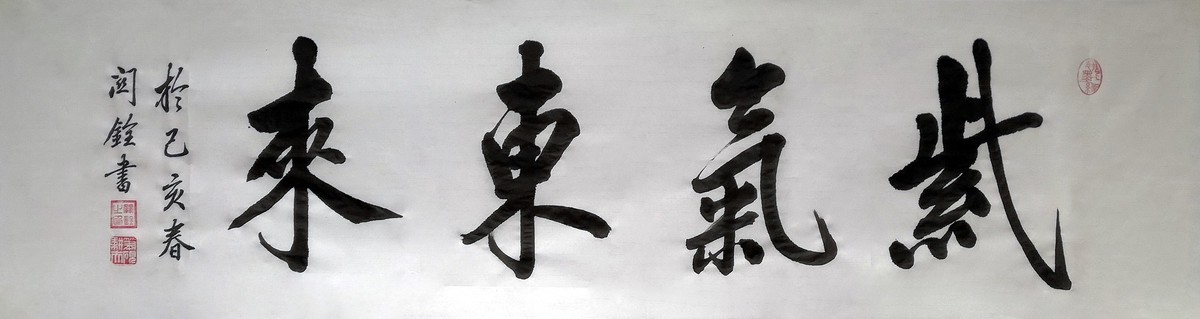 紫氣東來
於己亥春
闫銓書